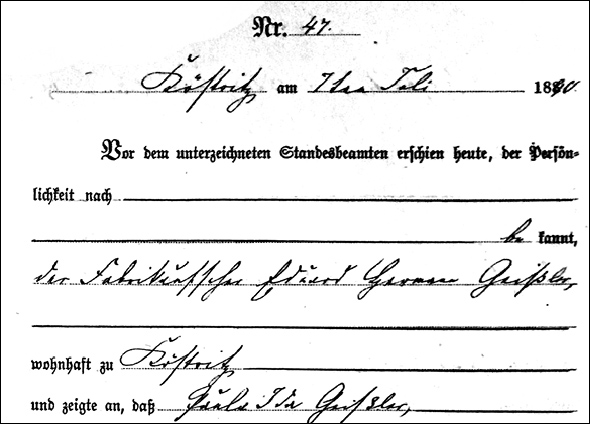 Nr. 47.
Köstritz am 7ten Juli 1890.
Vor dem unterzeichneten Standesbeamten erschien heute, der Persön-
lichkeit nach
be kannt,
der Fabrikaufseher Eduard Herman Geißler,
wohnhaft zu Köstritz
und zeigte an, daß Paula Ida Geißler,